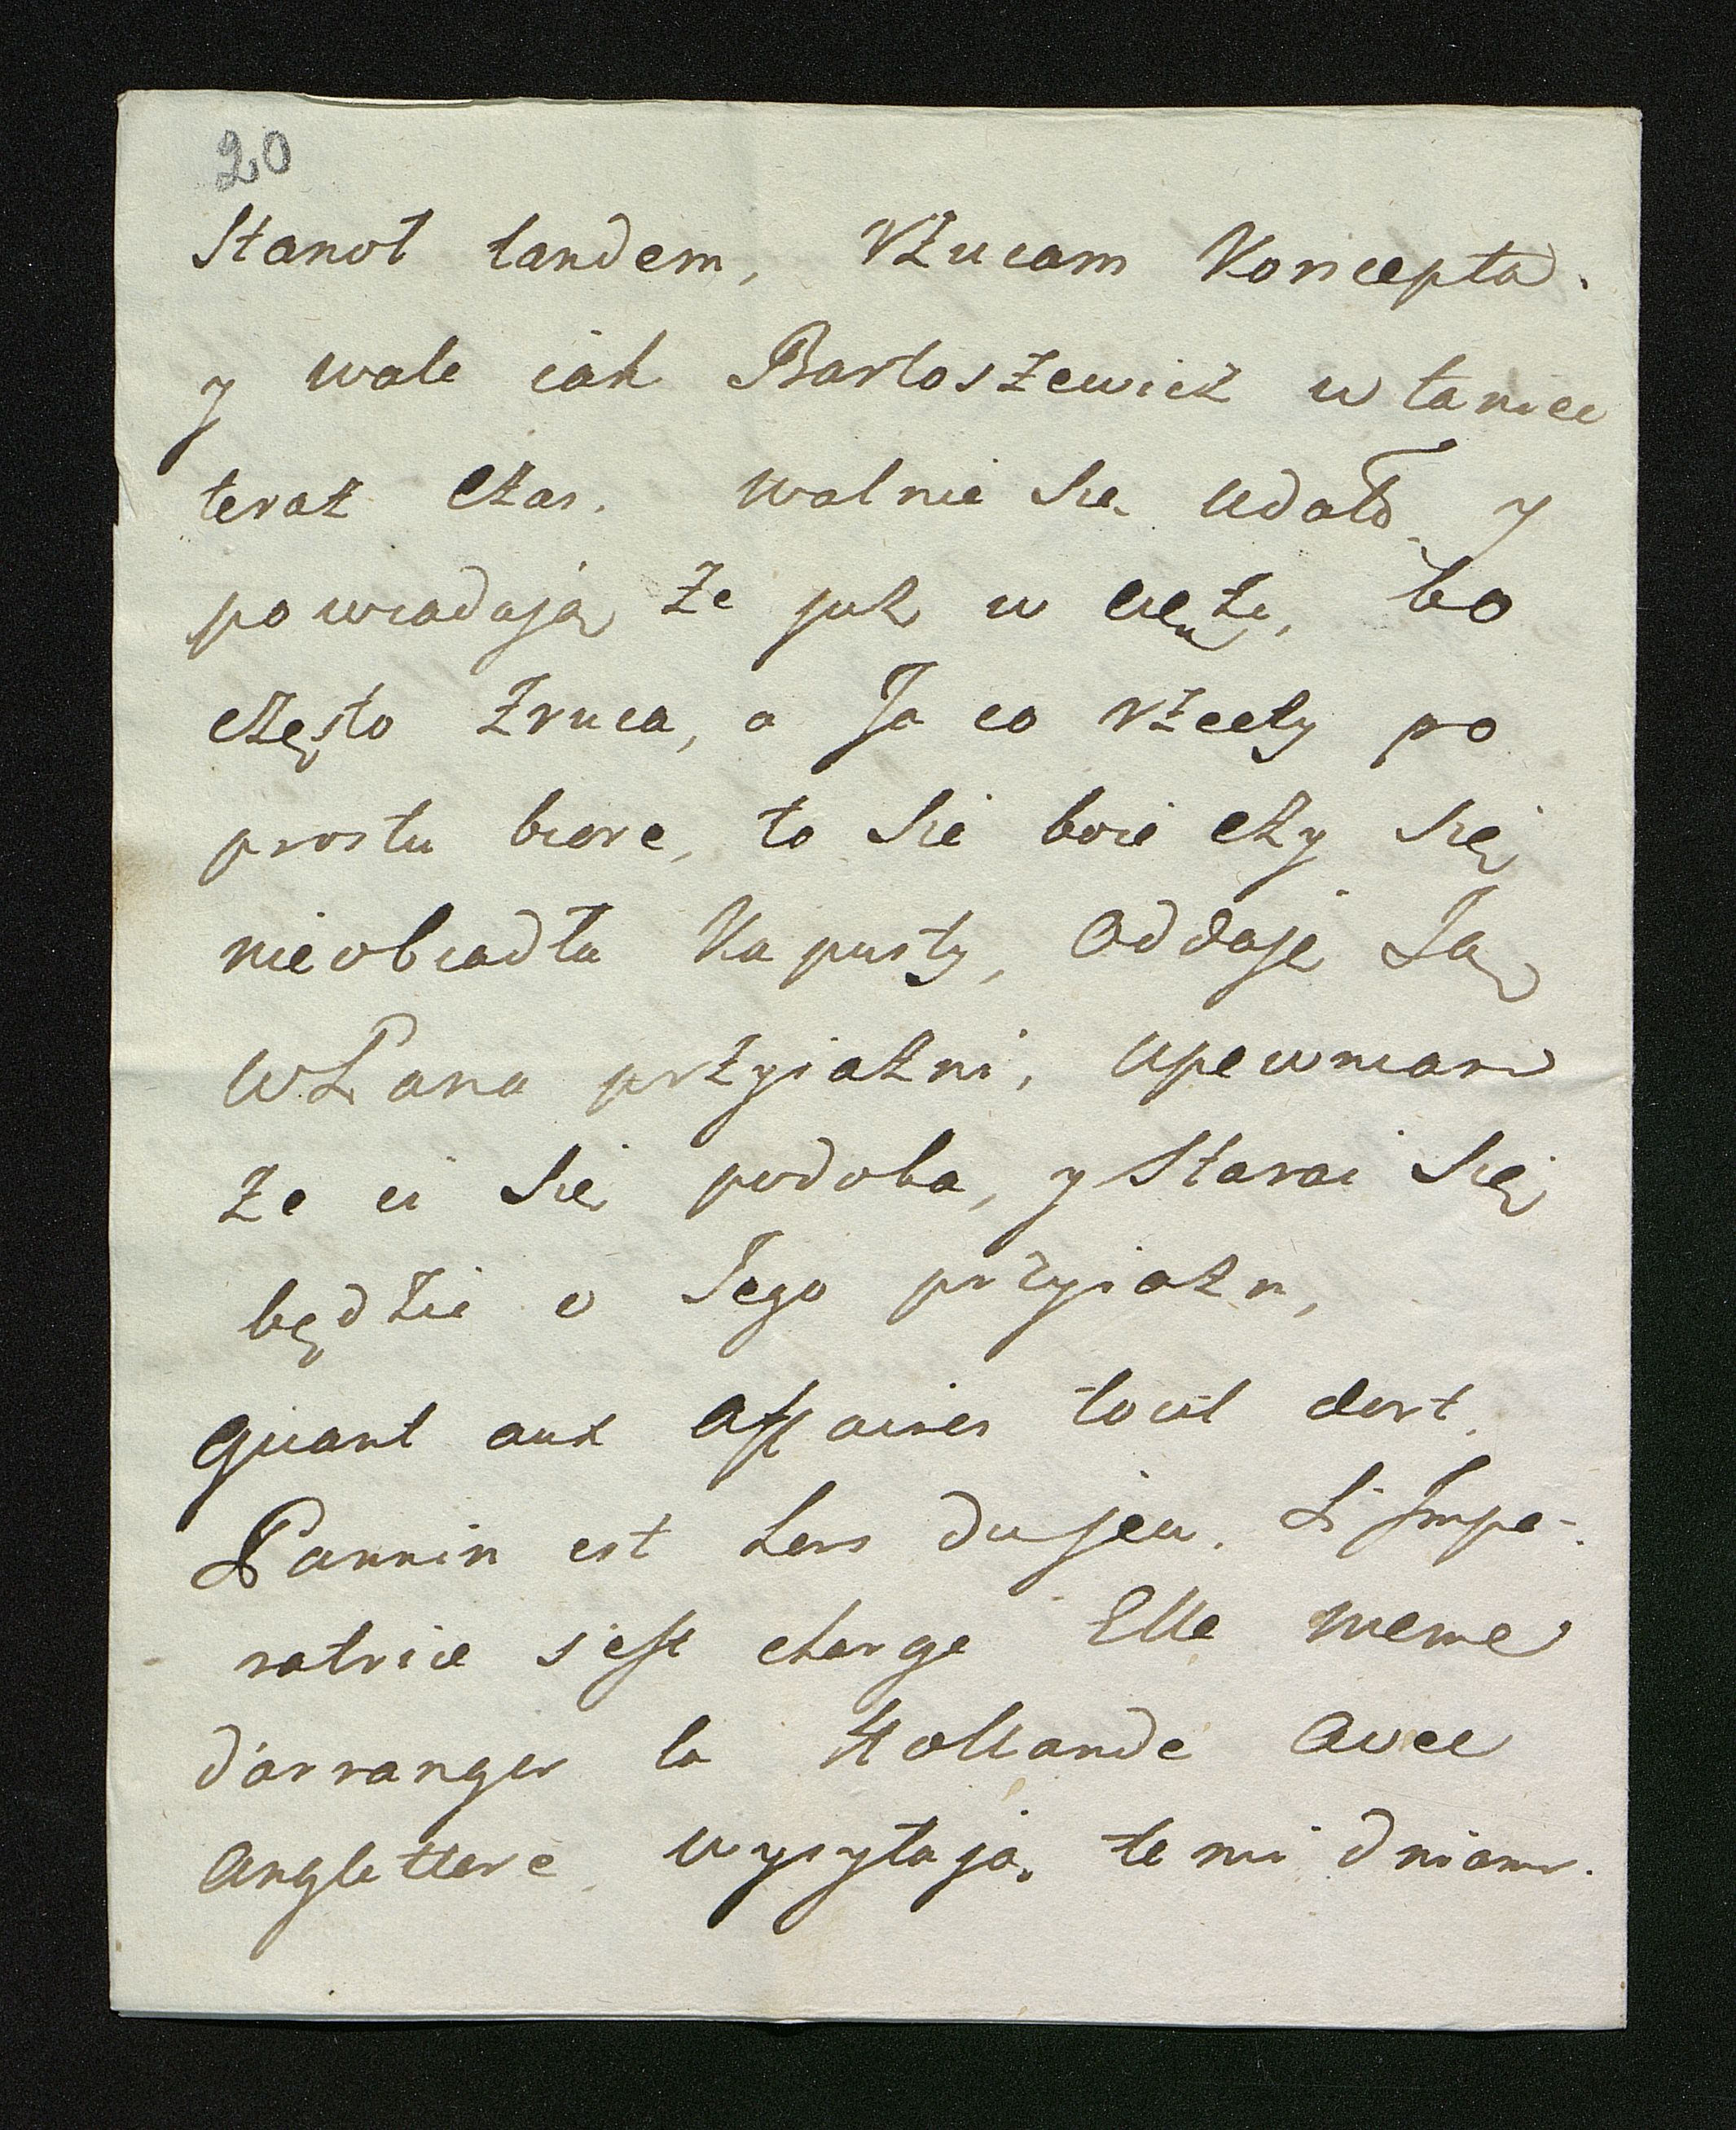 20
Stanol tandem, rzucam Koncepta.
y wale iak Bartoszewicz w tance
teraz czas. walnie sie udało y
powiadają że juz w cięzy, bo
często zruca, a Ja co rzeczy po
prostu biore, to sie boie czy się
nieobiadła Kapusty, Oddaję Ią
WPana przyiazni, upewniam
ze ci się podoba, y Starai się
będzie o Iego przyiazn,
quant aux affaires tout dort.
Pannin est hors du jeu. L'Impe-
ratrice s'est charge Elle meme
d'arranger la Hollande avec
Anglettere wysyłają temi dniami.